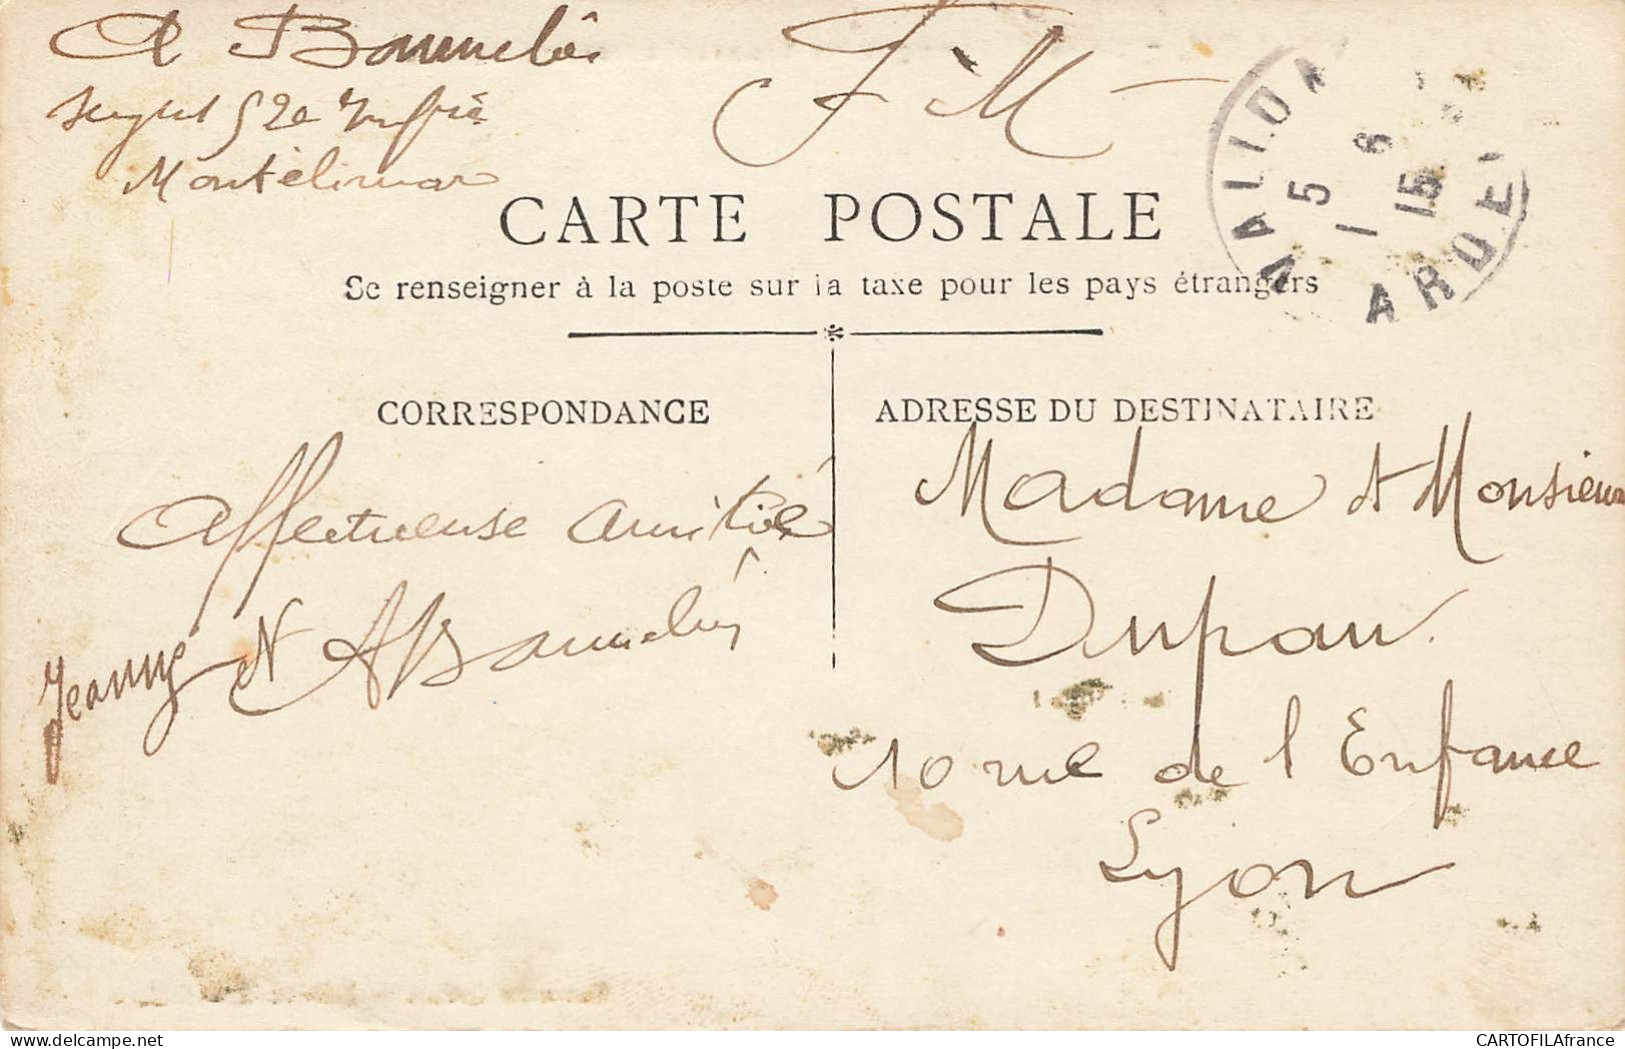 A
F M
Montélimar
VALLON
5 6
1 15
ARDE
CARTE POSTALE
Se renseigner à la poste sur la taxe pour les pays étrangers
CORRESPONDANCE
ADRESSE DU DESTINATAIRE
Affectueuse amitié
Jeanne et A
Madame et Monsieur
Dupau
10 rue de l Enfance
Lyon
CARTOFILAfrance
www.delcampe.net